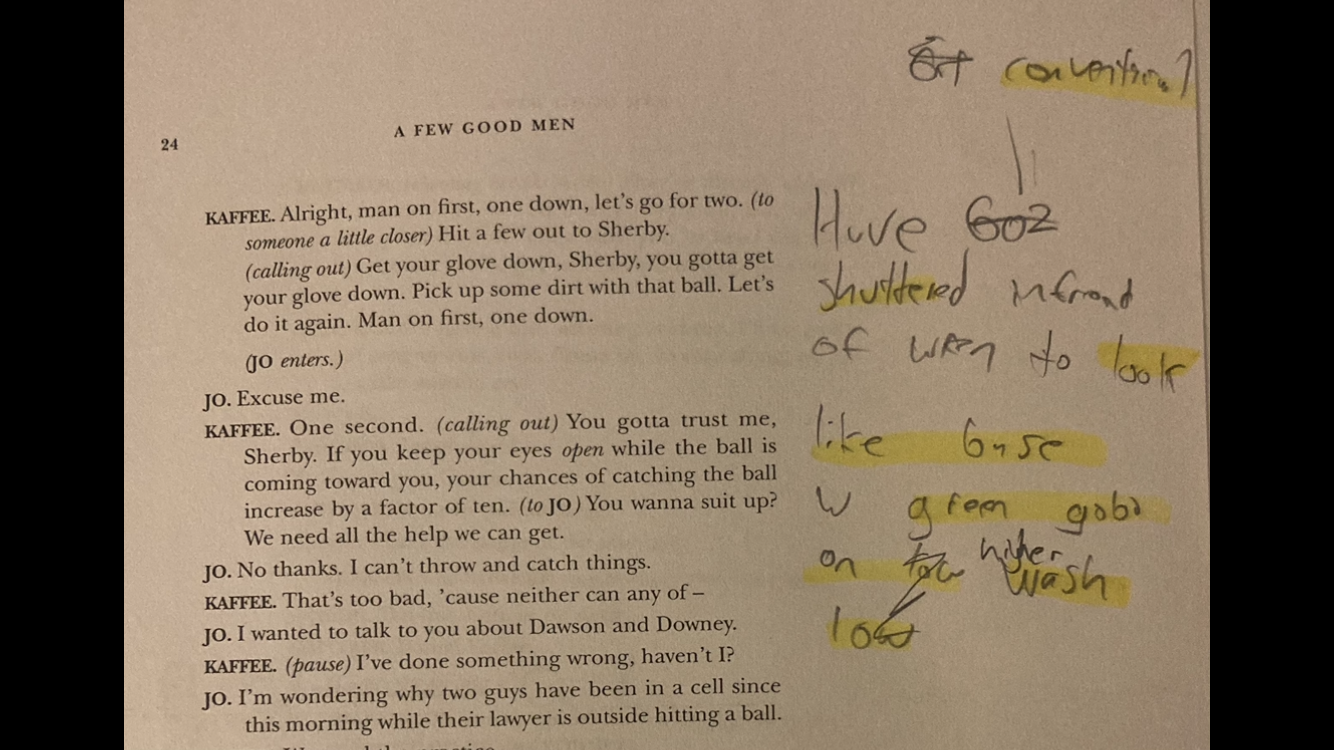 conventional
A FEW GOOD MEN
24
KAFFEE. Alright, man on first, one down, let's go for two. (to
someone a little closer) Hit a few out to Sherby.
(calling out) Get your glove down, Sherby, you gotta get
your glove down. Pick up some dirt with that ball. Let's
do it again. Man on first, one down.
(JO enters.)
JO. Excuse me.
KAFFEE. One second. (calling out) You gotta trust me,
Sherby. If you keep your eyes open while the ball is
coming toward you, your chances of catching the ball
increase by a factor of ten. (to JO) You wanna suit up?
We need all the help we can get.
JO. No thanks. I can't throw and catch things.
KAFFEE. That's too bad, 'cause neither can any of –
JO. I wanted to talk to you about Dawson and Downey.
KAFFEE. (pause) I've done something wrong, haven't I?
JO. I'm wondering why two guys have been in a cell since
this morning while their lawyer is outside hitting a ball.
Have
shuttered infront
of to look
like base
W green gobo
on higher
wash
low